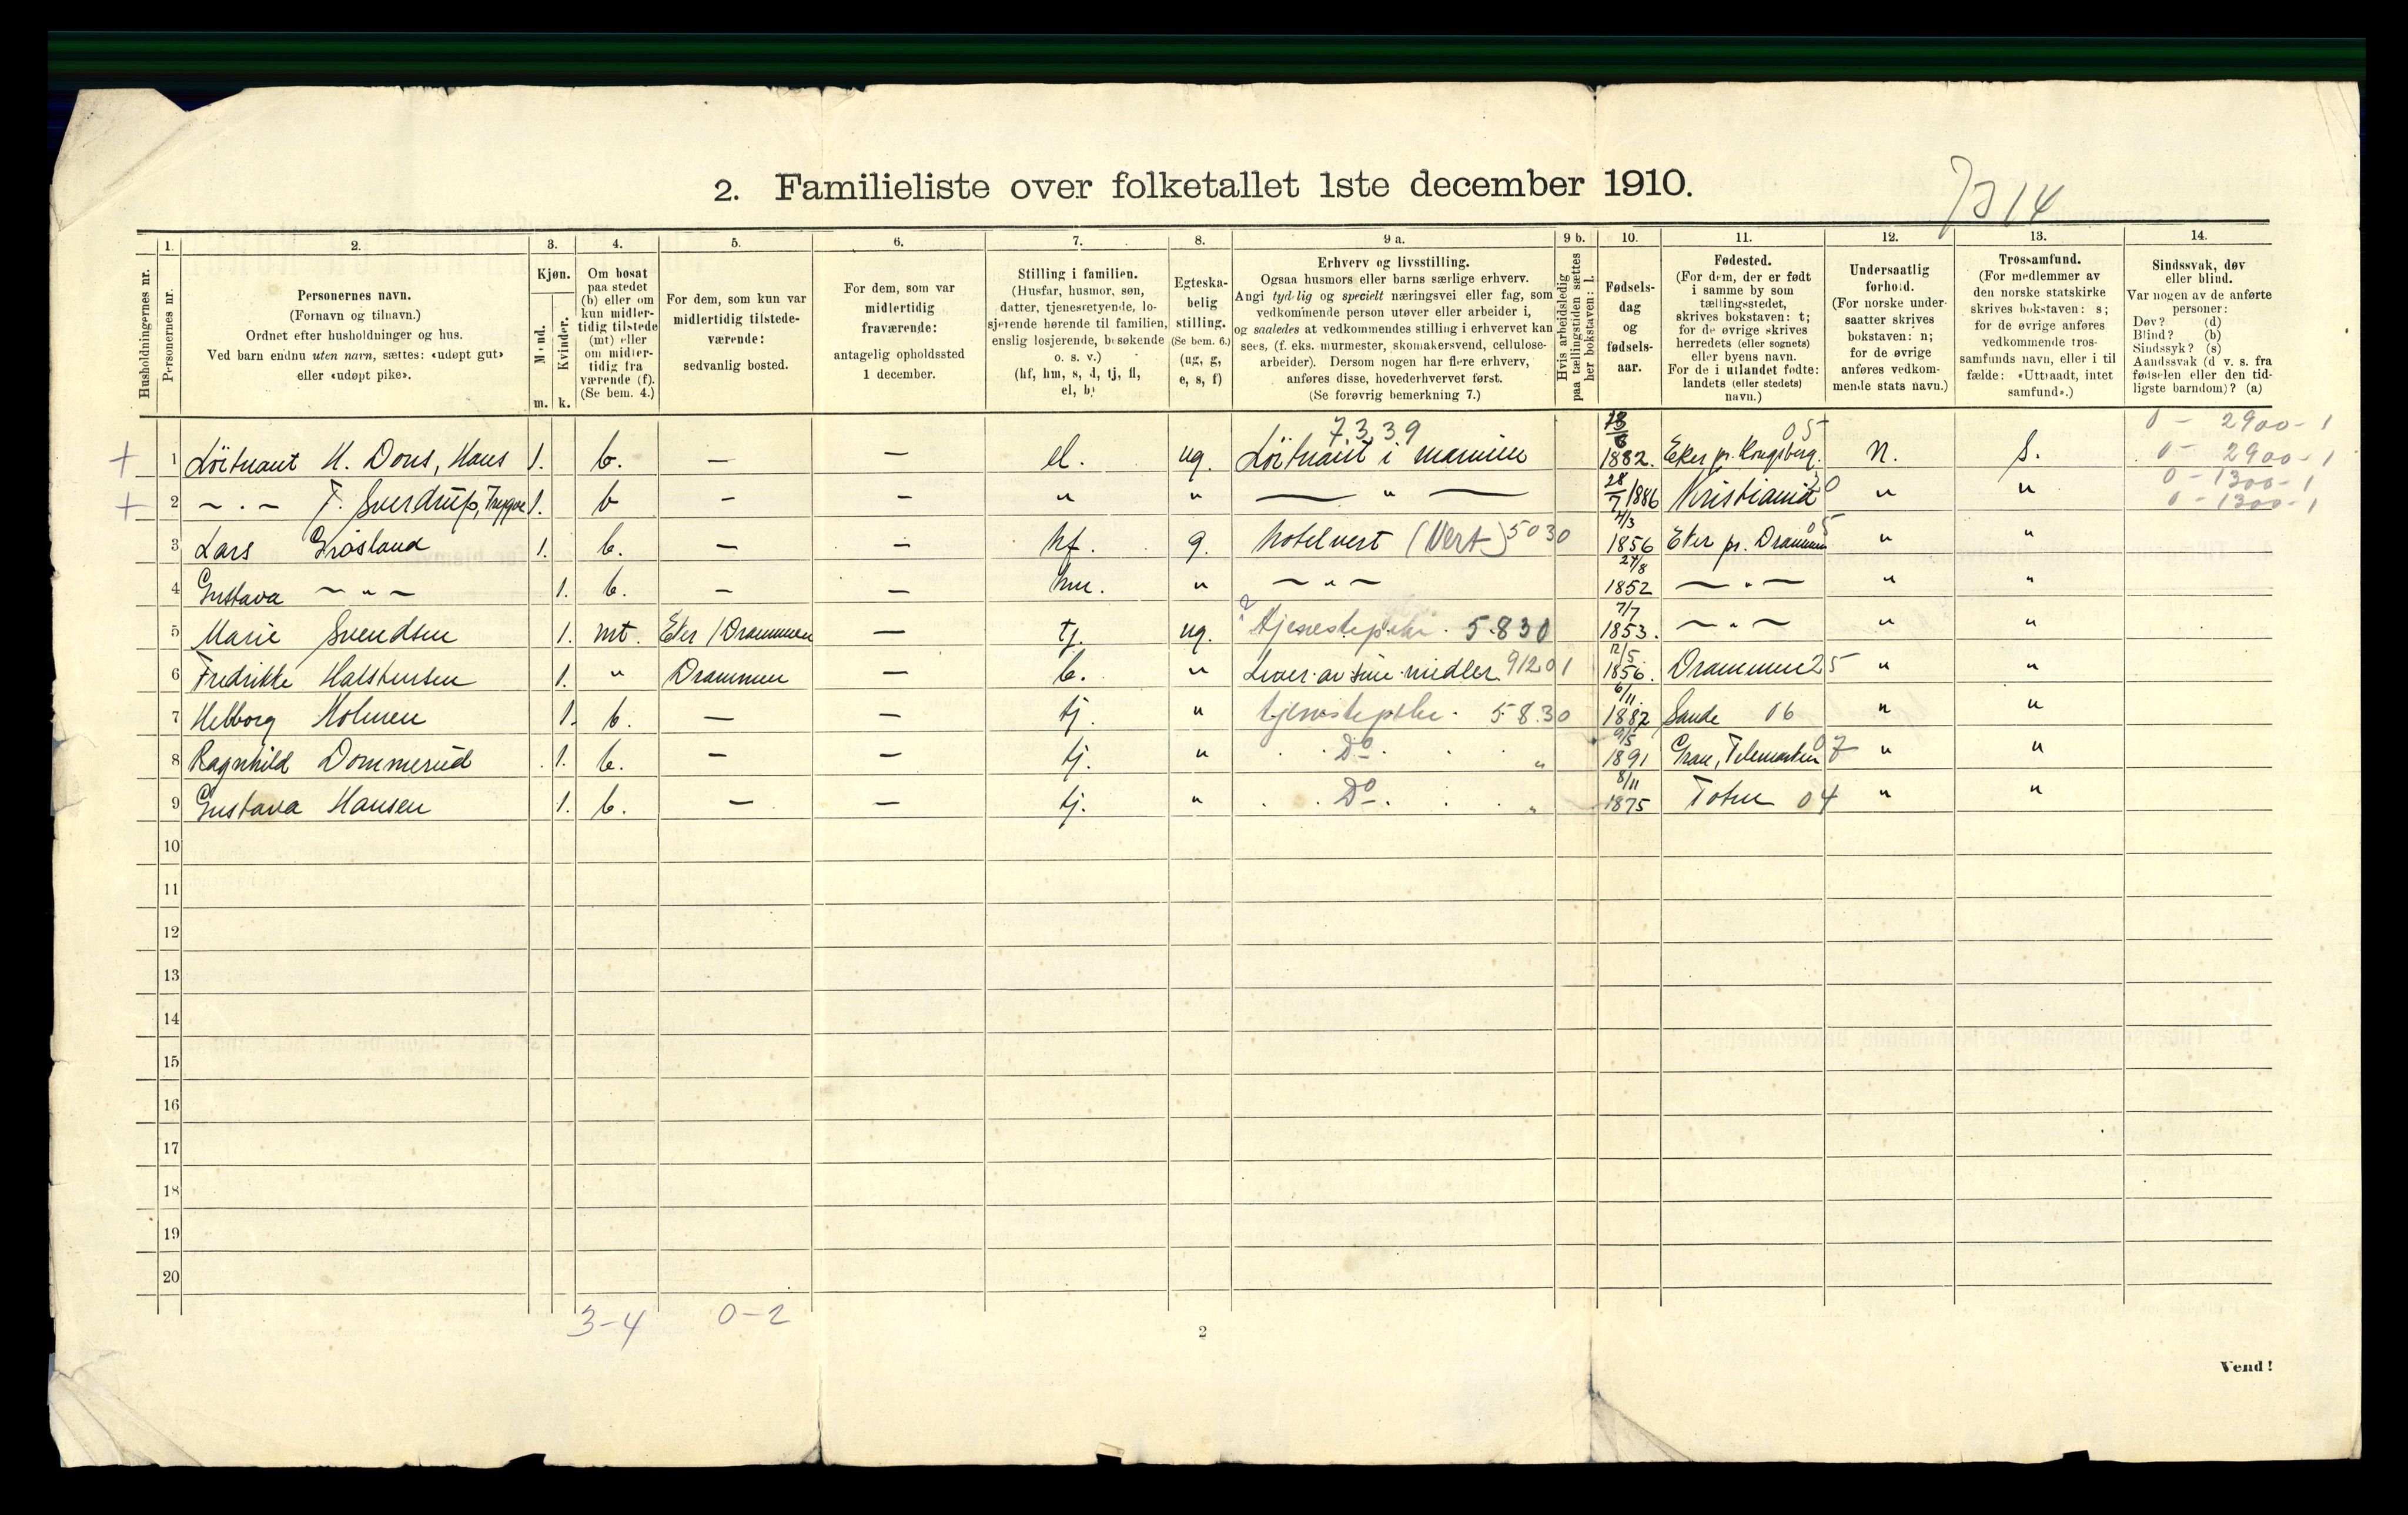 2. Familieliste over folketallet 1ste december 1910.
Husholdningernes nr.
1. Personernes nr.
2. Personernes navn.
(Fornavn og tilnavn.)
Ordnet efter husholdninger og hus.
Ved barn endnu uten navn, sættes: «udøpt gut»
eller «udøpt pike».
3. Kjøn.
Mænd. m.
Kvinder. k.
4. Om bosat
paa stedet
(b) eller om
kun midler-
tidig tilstede
(mt) eller
om midler-
tidig fra
værende (f).
(Se bem. 4.)
5. For dem, som kun var
midlertidig tilstede-
værende:
sedvanlig bosted.
6. For dem, som var
midlertidig
fraværende:
antagelig opholdssted
1 december.
7. Stilling i familien.
(Husfar, husmor, søn,
datter, tjenestetyende, lo-
sjerende hørende til familien,
enslig losjerende, besøkende
o. s. v.)
(hf, hm, s, d, tj, fl,
el, b)
8. Egteska-
belig
stilling.
(Se bem. 6.)
(ug, g,
e, s, f)
9 a. Erhverv og livsstilling.
Ogsaa husmors eller barns særlige erhverv.
Angi tydelig og specielt næringsvei eller fag, som
vedkommende person utøver eller arbeider i,
og saaledes at vedkommendes stilling i erhvervet kan
sees, (f. eks. murmester, skomakersvend, cellulose-
arbeider). Dersom nogen har flere erhverv,
anføres disse, hovederhvervet først.
(Se forøvrig bemerkning 7.)
9 b. Hvis arbeidsledig
paa tællingstiden sættes
her bokstaven: l.
10. Fødsels-
dag
og
fødsels-
aar.
11. Fødested.
(For dem, der er født
i samme by som
tællingsstedet,
skrives bokstaven: t;
for de øvrige skrives
herredets (eller sognets)
eller byens navn.
For de i utlandet fødte:
landets (eller stedets)
navn.)
12. Undersaatlig
forhold.
(For norske under-
saatter skrives
bokstaven: n;
for de øvrige
anføres vedkom-
mende stats navn.)
13. Trossamfund.
(For medlemmer av
den norske statskirke
skrives bokstaven: s;
for de øvrige anføres
vedkommende tros-
samfunds navn, eller i til
fælde: «Uttraadt, intet
samfund».)
14. Sindssvak, døv
eller blind.
Var nogen av de anførte
personer:
Døv? (d)
Blind? (b)
Sindssyk? (s)
Aandssvak (d v. s. fra
fødselen eller den tid-
ligste barndom)? (a)
0 - 2900 - 1
+ 1 Løitnant H. Dons, Hans 1. b. — — el. ug. Løitnant i marinen 7339 1882. Eker pr. Kongsberg. 05 n. s. 0 - 2900 - 1
0 - 1300 - 1
+ 2 — " — T. Sverdrup, Trygve 1. b — — " " — " — 28/7 1886 Kristiania 20 " " 0 - 1300 - 1
3 Lars Grøsland 1. b. — — hf. g. hotelvert (Vert) 5030 4/3 1856 Eker pr. Drammen 05 " "
4 Gustava — " — 1. b. — — hm. " — " — 24/8 1852 — " — " "
5 Marie Svendsen 1. mt. Eker / Drammen — tj. ug. tjenestepike. 5.830 7/7 1853. — " — " "
6 Fredrikke Halstensen 1. " Drammen — b. " Lever av sine midler 91201 12/5 1856. Drammen 25 " "
7 Helborg Holmen 1. b. — — tj. " tjenestepike. 5 8.30 6/11. 1882 Sande 06 " "
8 Ragnhild Dommerud 1. b. — — tj. " Do " 9/5 1891 Gran, Telemarken 07 " "
9 Gustava Hansen 1. b. — — tj. " Do " 8/11 1875 Toten 04 " "
10
11
12
13
14
15
16
17
18
19
20
3-4 0-2
2
Vend!